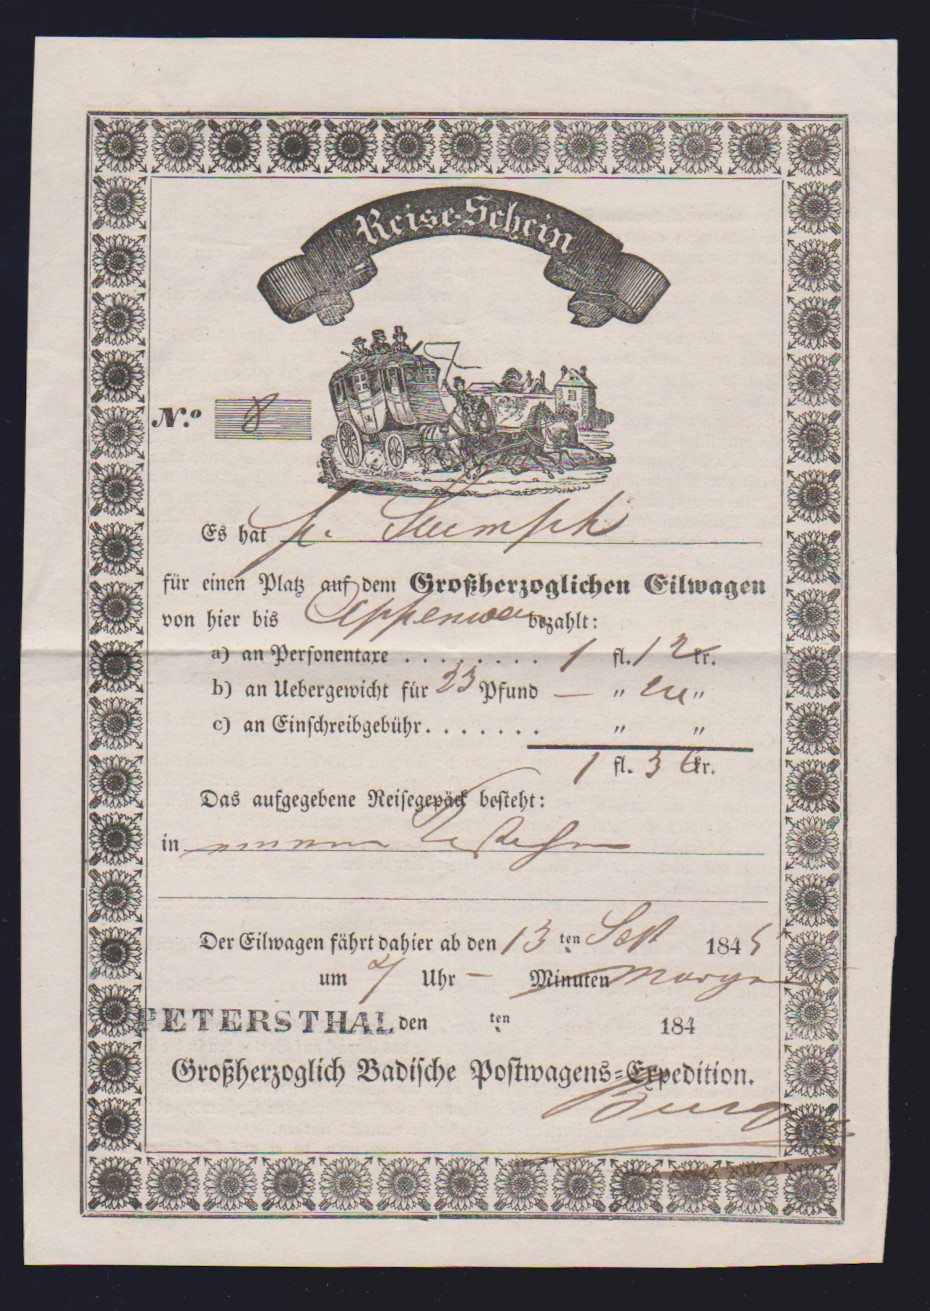 Reise-Schein
N.º 8
Es hat
für einen Platz auf dem Großherzoglichen Eilwagen
von hier bis Appenwei bezahlt:
a) an Personentaxe . . . . . . . . . 1 fl. 12 kr.
b) an Uebergewicht für 33 Pfund — „ „
c) an Einschreibgebühr . . . . . . . „ „
1 fl. 36 kr.
Das aufgegebene Reisegepäck besteht:
in
Der Eilwagen fährt dahier ab den 13 ten Sept 1845
um 7 Uhr – Minuten Morgens
PETERSTHAL den ten 184
Großherzoglich Badische Postwagens-Expedition.